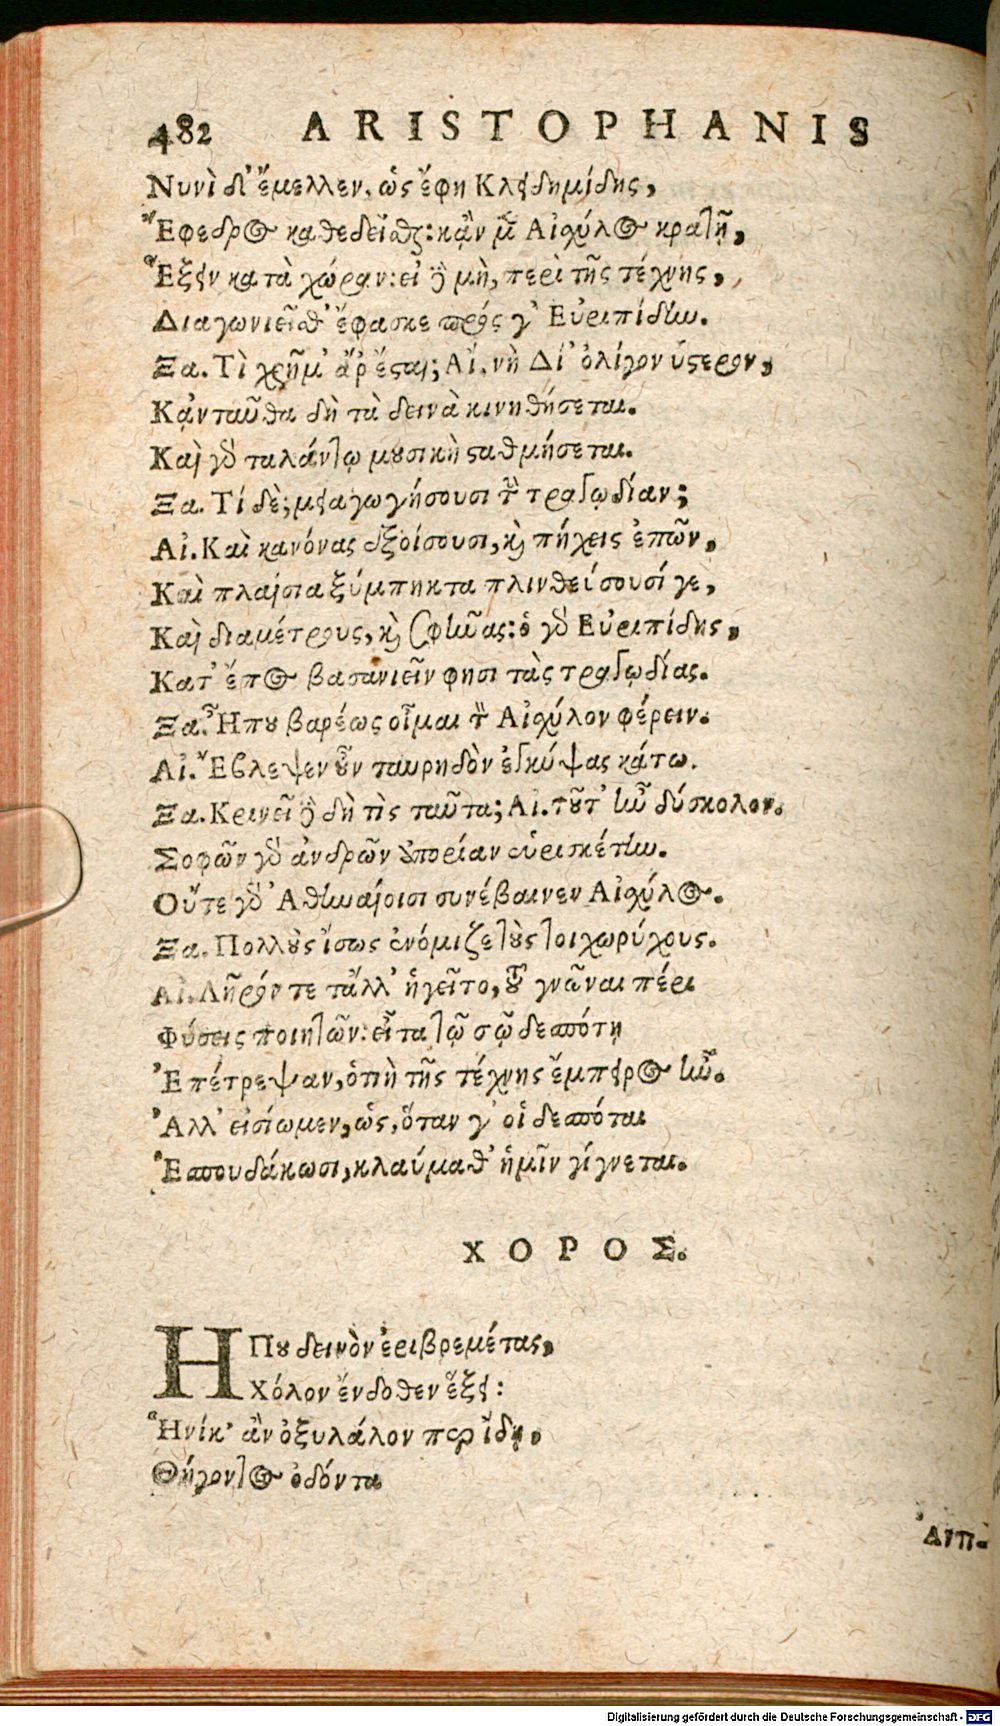 482 ARISTOPHANIS
Νυνὶ δ' ἔμελλεν, ὡς ἔφη Κλειδημίδης,
Ἔφεδρος καθεδεῖσθαι: κᾂν μὲν Αἰσχύλος κρατῇ,
Ἕξειν κατὰ χώραν: εἰ δὲ μὴ, περὶ τῆς τέχνης,
Διαγωνιεῖσθ' ἔφασκε πρός γ' Εὐριπίδην.
Ξα. Τὶ χρῆμ' ἄρ' ἔσται; Αἴ. νὴ Δί' ὀλίγον ὕστερον,
Κᾀνταῦθα δὴ τὰ δεινὰ κινηθήσεται.
Καὶ γὸ ταλάντῳ μουσικὴ σταθμήσεται.
Ξα. Τί δὲ; μειαγωγήσουσι τὴν τραγῳδίαν;
Αἰ. Καὶ κανόνας ἐξοίσουσι, καὶ πήχεις ἐπῶν,
Καὶ πλαίσια ξύμπηκτα πλινθεύσουσί γε,
Καὶ διαμέτρους, καὶ σφῆνας: ὁ γὸ Εὐριπίδης,
Κατ' ἔπος βασανιεῖν φησι τὰς τραγῳδίας.
Ξα. Ἦπου βαρέως οἶμαι τὸν Αἰσχύλον φέρειν.
Αἰ. Ἔβλεψεν οὖν ταυρηδὸν ἐγκύψας κάτω.
Ξα. Κρινεῖ δὲ δὴ τὶς ταῦτα; Αἰ. τοῦτ' ἦν δύσκολον.
Σοφῶν γὸ ἀνδρῶν ἀπορίαν εὑρισκέτην.
Οὔτε γὸ Ἀθηναίοισι συνέβαινεν Αἰσχύλος.
Ξα. Πολλοὺς ἴσως ἐνόμιζε τοὺς τοιχωρύχους.
Αἰ. Λῆρόν τε τἄλλ' ἡγεῖτο, τοῦ γνῶναι πέρι
Φύσεις ποιητῶν: εἶτα τῷ σῷ δεσπότῃ
Ἐπέτρεψαν, ὁτιὴ τῆς τέχνης ἔμπειρος ἦν.
Ἀλλ' εἰσίωμεν, ὡς, ὅταν γ' οἱ δεσπόται
Ἐσπουδάκωσι, κλαύμαθ' ἡμῖν γίγνεται.
ΧΟΡΟΣ.
ΗΠου δεινὸν ἐριβρεμέτας,
Χόλον ἔνδοθεν ἕξει:
Ἡνίκ' ἂν ὀξυλάλον περ ἴδῃ,
Θήγοντος ὀδόντα
Ἀντι-
Digitalisierung gefördert durch die Deutsche Forschungsgemeinschaft - DFG